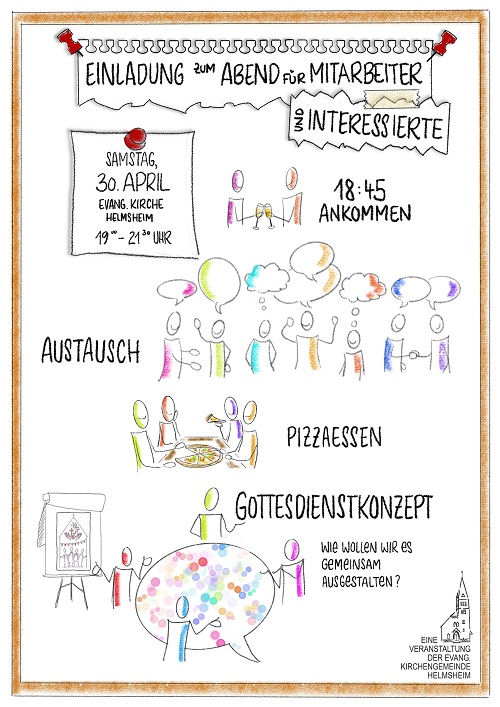 EINLADUNG ZUM ABEND FÜR MITARBEITER
UND INTERESSIERTE
SAMSTAG,
30. APRIL
EVANG. KIRCHE
HELMSHEIM
19⁰⁰ - 21³⁰ UHR
18:45
ANKOMMEN
AUSTAUSCH
PIZZAESSEN
GOTTESDIENSTKONZEPT
WIE WOLLEN WIR ES
GEMEINSAM
AUSGESTALTEN?
EINE
VERANSTALTUNG
DER EVANG.
KIRCHENGEMEINDE
HELMSHEIM